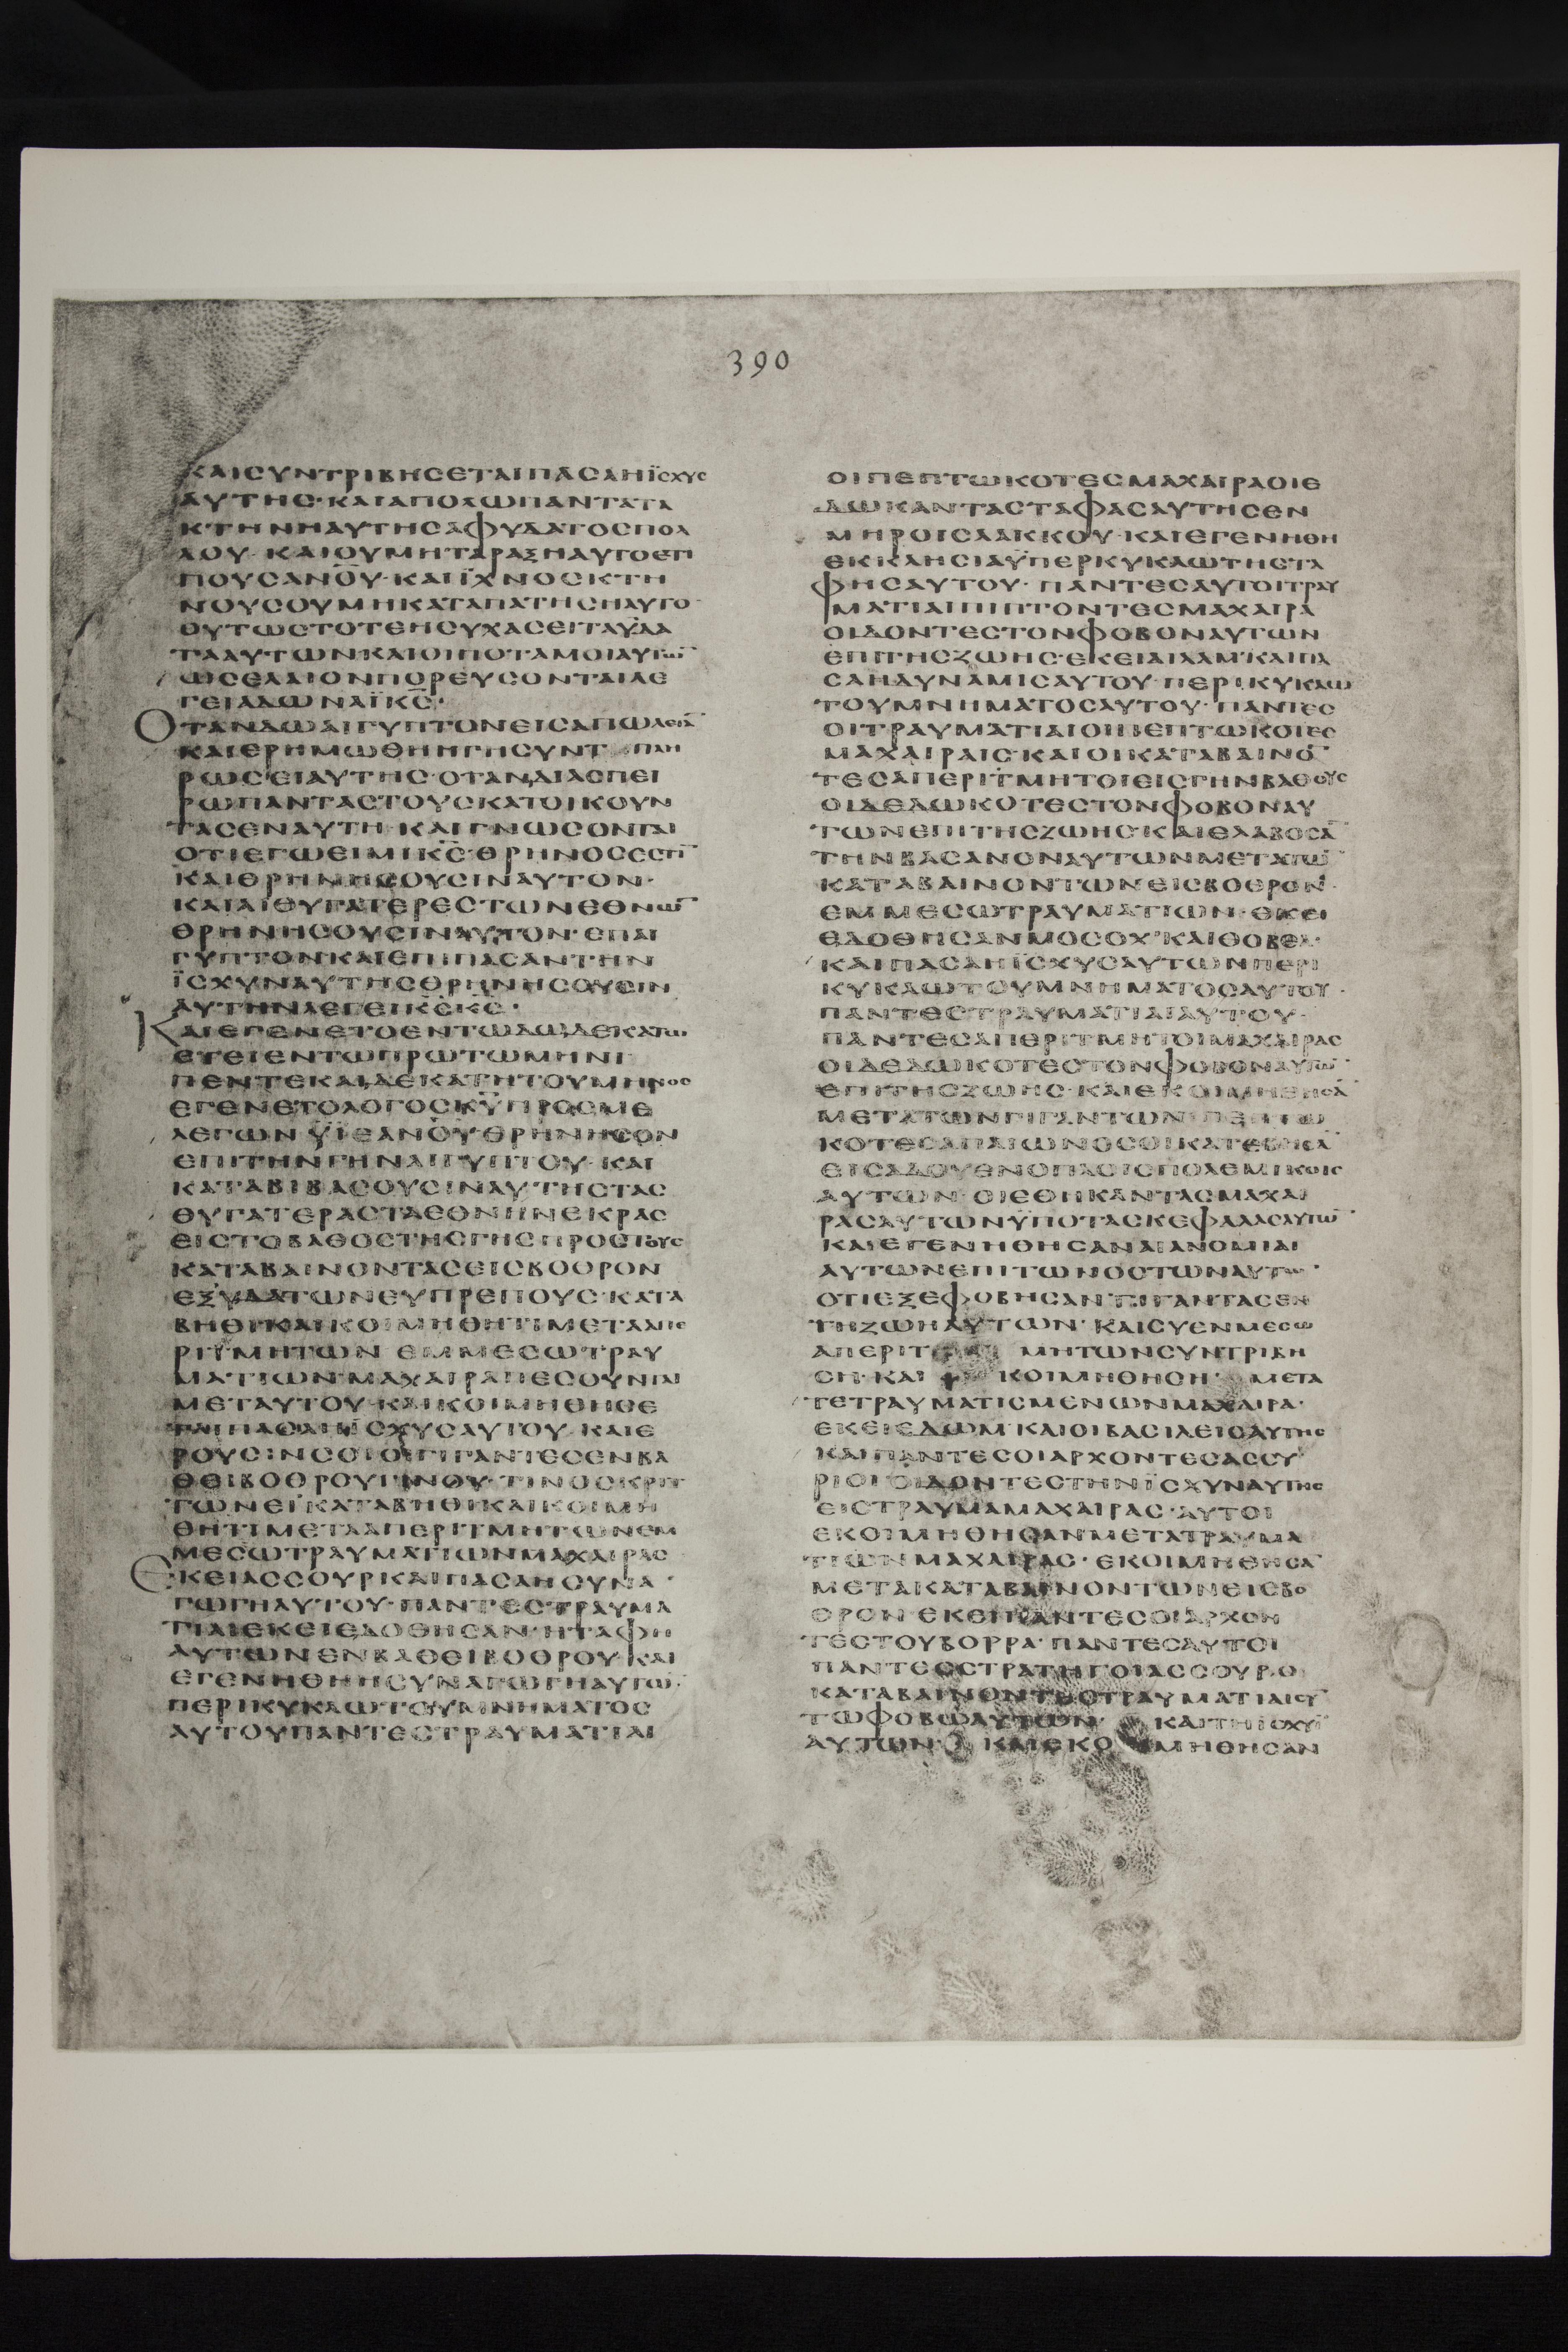 390
ΚΑΙϹΥΝΤΡΙΒΗϹΕΤΑΙΠΑϹΑΗΪϹΧΥϹ
ΑΥΤΗϹ·ΚΑΙΑΠΟΛΩΠΑΝΤΑΤΑ
ΚΤΗΝΗΑΥΤΗϹΑΦΥΔΑΤΟϹΠΟΛ
ΛΟΥ·ΚΑΙΟΥΜΗΤΑΡΑΞΗΑΥΤΟΕΤΙ
ΠΟΥϹΑΝ̅Ο̅Υ̅·ΚΑΙΪΧΝΟϹΚΤΗ
ΝΟΥϹΟΥΜΗΚΑΤΑΠΑΤΗϹΗΑΥΤΟ·
ΟΥΤΩϹΤΟΤΕΗϹΥΧΑϹΕΙΤΑΫΔΑ
ΤΑΑΥΤΩΝΚΑΙΟΙΠΟΤΑΜΟΙΑΥΤΩ̅
ΩϹΕΛΑΙΟΝΠΟΡΕΥϹΟΝΤΑΙΛΕ
ΓΕΙΑΔΩΝΑΪΚ̅Ϲ̅·
ΟΤΑΝΔΩΑΙΓΥΠΤΟΝΕΙϹΑΠΩΛΕΙΑ̅
ΚΑΙΕΡΗΜΩΘΗΗΓΗϹΥΝΤ ΠΛΗ
ΡΩϹΕΙΑΥΤΗϹ·ΟΤΑΝΔΙΑϹΠΕΙ
ΡΩΠΑΝΤΑϹΤΟΥϹΚΑΤΟΙΚΟΥΝ
ΤΑϹΕΝΑΥΤΗ·ΚΑΙΓΝΩϹΟΝΤΑΙ
ΟΤΙΕΓΩΕΙΜΙΚ̅Ϲ̅·ΘΡΗΝΟϹΕϹΤΙ̅
ΚΑΙΘΡΗΝΗϹΟΥϹΙΝΑΥΤΟΝ·
ΚΑΙΑΙΘΥΓΑΤΕΡΕϹΤΩΝΕΘΝΩ̅
ΘΡΗΝΗϹΟΥϹΙΝΑΥΤΟΝ·ΕΠΑΙ
ΓΥΠΤΟΝΚΑΙΕΠΙΠΑϹΑΝΤΗΝ
ΪϹΧΥΝΑΥΤΗϹΘΡΗΝΗϹΟΥϹΙΝ
ΑΥΤΗΝΛΕΓΕΙΚ̅Ϲ̅Κ̅Ϲ̅·
ΚΑΙΕΓΕΝΕΤΟΕΝΤΩΔΩΔΕΚΑΤΩ
ΕΤΕΙΕΝΤΩΠΡΩΤΩΜΗΝΙ
ΠΕΝΤΕΚΑΙΔΕΚΑΤΗΤΟΥΜΗΝΟϹ
ΕΓΕΝΕΤΟΛΟΓΟϹΚ̅Υ̅ΠΡΟϹΜΕ
ΛΕΓΩΝ·ΫΙΕΑΝ̅Ο̅Υ̅·ΘΡΗΝΗϹΟΝ
ΕΠΙΤΗΝΓΗΝΑΙΓΥΠΤΟΥ·ΚΑΙ
ΚΑΤΑΒΙΒΑϹΟΥϹΙΝΑΥΤΗϹΤΑϹ
ΘΥΓΑΤΕΡΑϹΤΑΕΘΝΗΝΕΚΡΑϹ
ΕΙϹΤΟΒΑΘΟϹΤΗϹΓΗϹΠΡΟϹΤΟΥϹ
ΚΑΤΑΒΑΙΝΟΝΤΑϹΕΙϹΒΟΘΡΟΝ
ΕΞΫΔΑΤΩΝΕΥΠΡΕΠΟΥϹ·ΚΑΤΑ
ΒΗΘΙΚΑΙΚΟΙΜΗΘΗΤΙΜΕΤΑΑΠΕ
ΡΙΤΜΗΤΩΝ ΕΜΜΕϹΩΤΡΑΥ
ΜΑΤΙΩΝ·ΜΑΧΑΙΡΑΠΕϹΟΥΝΤΑΙ
ΜΕΤΑΥΤΟΥ·ΚΑΙΚΟΙΜΗΘΗϹΕ
ΤΑΙΠΑϹΑΗΪϹΧΥϹΑΥΤΟΥ·ΚΑΙΕ
ΡΟΥϹΙΝϹΟΙΟΙΓΙΓΑΝΤΕϹΕΝΒΑ
ΘΕΙΒΟΘΡΟΥΓΙΝΟΥ·ΤΙΝΟϹΚΡΙΤ
ΤΩΝΕΙ·ΚΑΤΑΒΗΘΙΚΑΙΚΟΙΜΗ
ΘΗΤΙΜΕΤΑΑΠΕΡΙΤΜΗΤΩΝΕΜ
ΜΕϹΩΤΡΑΥΜΑΤΙΩΝΜΑΧΑΙΡΑϹ
ΕΚΕΙΑϹϹΟΥΡΚΑΙΠΑϹΑΗϹΥΝΑ
ΓΩΓΗΑΥΤΟΥ·ΠΑΝΤΕϹΤΡΑΥΜΑ
ΤΙΑΙΕΚΕΙΕΔΟΘΗϹΑΝ·ΗΤΑΦΗ
ΑΥΤΩΝΕΝΒΑΘΕΙΒΟΘΡΟΥ·ΚΑΙ
ΕΓΕΝΗΘΗΗϹΥΝΑΓΩΓΗΑΥΤΟΥ·
ΠΕΡΙΚΥΚΛΩΤΟΥΜΝΗΜΑΤΟϹ
ΑΥΤΟΥΠΑΝΤΕϹΤΡΑΥΜΑΤΙΑΙ
ΟΙΠΕΠΤΩΚΟΤΕϹΜΑΧΑΙΡΑΟΙΕ
ΔΩΚΑΝΤΑϹΤΑΦΑϹΑΥΤΗϹΕΝ
ΜΗΡΟΙϹΛΑΚΚΟΥ·ΚΑΙΕΓΕΝΗΘΗ
ΕΚΚΛΗϹΙΑΫΠΕΡΚΥΚΛΩΤΗϹΤΑ
ΦΗϹΑΥΤΟΥ· ΠΑΝΤΕϹΑΥΤΟΙΤΡΑΥ
ΜΑΤΙΑΙΠΙΠΤΟΝΤΕϹΜΑΧΑΙΡΑ
ΟΙΔΟΝΤΕϹΤΟΝΦΟΒΟΝΑΥΤΩΝ
ΕΠΙΤΗϹΖΩΗϹ·ΕΚΕΙΑΙΛΑΜ·ΚΑΙΠΑ
ϹΑΗΔΥΝΑΜΙϹΑΥΤΟΥ·ΠΕΡΙΚΥΚΛΩ
ΤΟΥΜΝΗΜΑΤΟϹΑΥΤΟΥ·ΠΑΝΤΕϹ
ΟΙΤΡΑΥΜΑΤΙΑΙΟΙΠΕΠΤΩΚΟΤΕϹ
ΜΑΧΑΙΡΑΙϹ·ΚΑΙΟΙΚΑΤΑΒΑΙΝΟ̅
ΤΕϹΑΠΕΡΙΤΜΗΤΟΙΕΙϹΓΗΝΒΑΘΟΥϹ
ΟΙΔΕΔΩΚΟΤΕϹΤΟΝΦΟΒΟΝΑΥ
ΤΩΝΕΠΙΤΗϹΖΩΗϹ·ΚΑΙΕΛΑΒΟϹΑ̅
ΤΗΝΒΑϹΑΝΟΝΑΥΤΩΝΜΕΤΑΤΩ̅
ΚΑΤΑΒΑΙΝΟΝΤΩΝΕΙϹΒΟΘΡΟΝ·
ΕΜΜΕϹΩΤΡΑΥΜΑΤΙΩΝ·ΕΚΕΙ
ΕΔΟΘΗϹΑΝΜΟϹΟΧ·ΚΑΙΘΟΒΕΛ·
ΚΑΙΠΑϹΑΗΪϹΧΥϹΑΥΤΩΝΠΕΡΙ
ΚΥΚΛΩΤΟΥΜΝΗΜΑΤΟϹΑΥΤΟΥ·
ΠΑΝΤΕϹΤΡΑΥΜΑΤΙΑΙΑΥΤΟΥ·
ΠΑΝΤΕϹΑΠΕΡΙΤΜΗΤΟΙΜΑΧΑΙΡΑϹ
ΟΙΔΕΔΩΚΟΤΕϹΤΟΝΦΟΒΟΝΑΥΤΩ̅
ΕΠΙΤΗϹΖΩΗϹ·ΚΑΙΕΚΟΙΜΗΘΗϹΑ̅
ΜΕΤΑΤΩΝΓΙΓΑΝΤΩΝΠΕΠΤΩ
ΚΟΤΕϹΑΠΑΙΩΝΟϹΟΙΚΑΤΕΒΗϹΑ̅
ΕΙϹΑΔΟΥΕΝΟΠΛΟΙϹΠΟΛΕΜΙΚΟΙϹ
ΑΥΤΩΝ·ΟΙΕΘΗΚΑΝΤΑϹΜΑΧΑΙ
ΡΑϹΑΥΤΩΝΫΠΟΤΑϹΚΕΦΑΛΑϹΑΥΤΩ̅
ΚΑΙΕΓΕΝΗΘΗϹΑΝΑΙΑΝΟΜΙΑΙ
ΑΥΤΩΝΕΠΙΤΩΝΟϹΤΩΝΑΥΤΩ̅·
ΟΤΙΕΞΕΦΟΒΗϹΑΝΓΙΓΑΝΤΑϹΕΝ
ΤΗΖΩΗΑΥΤΩΝ·ΚΑΙϹΥΕΝΜΕϹΩ
ΑΠΕΡΙΤ ΜΗΤΩΝϹΥΝΤΡΙΒΗ
ϹΗ·ΚΑΙ ΚΟΙΜΗΘΗϹΗ· ΜΕΤΑ
ΤΕΤΡΑΥΜΑΤΙϹΜΕΝΩΝΜΑΧΑΙΡΑ·
ΕΚΕΙΕΔΩΜ·ΚΑΙΟΙΒΑϹΙΛΕΙϹΑΥΤΗϹ
ΚΑΙΠΑΝΤΕϹΟΙΑΡΧΟΝΤΕϹΑϹϹΥ
ΡΙΟΙΟΙΔΟΝΤΕϹΤΗΝΪϹΧΥΝΑΥΤΗϹ
ΕΙϹΤΡΑΥΜΑΜΑΧΑΙΡΑϹ·ΑΥΤΟΙ
ΕΚΟΙΜΗΘΗϹΑΝΜΕΤΑΤΡΑΥΜΑ
ΤΙΩΝΜΑΧΑΙΡΑϹ·ΕΚΟΙΜΗΘΗϹΑ̅
ΜΕΤΑΚΑΤΑΒΑΙΝΟΝΤΩΝΕΙϹΒΟ
ΘΡΟΝ·ΕΚΕΙΠΑΝΤΕϹΟΙΑΡΧΟΝ
ΤΕϹΤΟΥΒΟΡΡΑ·ΠΑΝΤΕϹΑΥΤΟΙ
ΠΑΝΤΕϹϹΤΡΑΤΗΓΟΙΑϹϹΟΥΡ·ΟΙ
ΚΑΤΑΒΑΙΝΟΝΤΕϹΤΡΑΥΜΑΤΙΑΙϹΥ̅
ΤΩΦΟΒΩΑΥΤΩΝ· ΚΑΙΤΗΙϹΧΥΪ
ΑΥΤΩΝ· ΚΑΙΕΚΟ ΜΗΘΗϹΑΝ